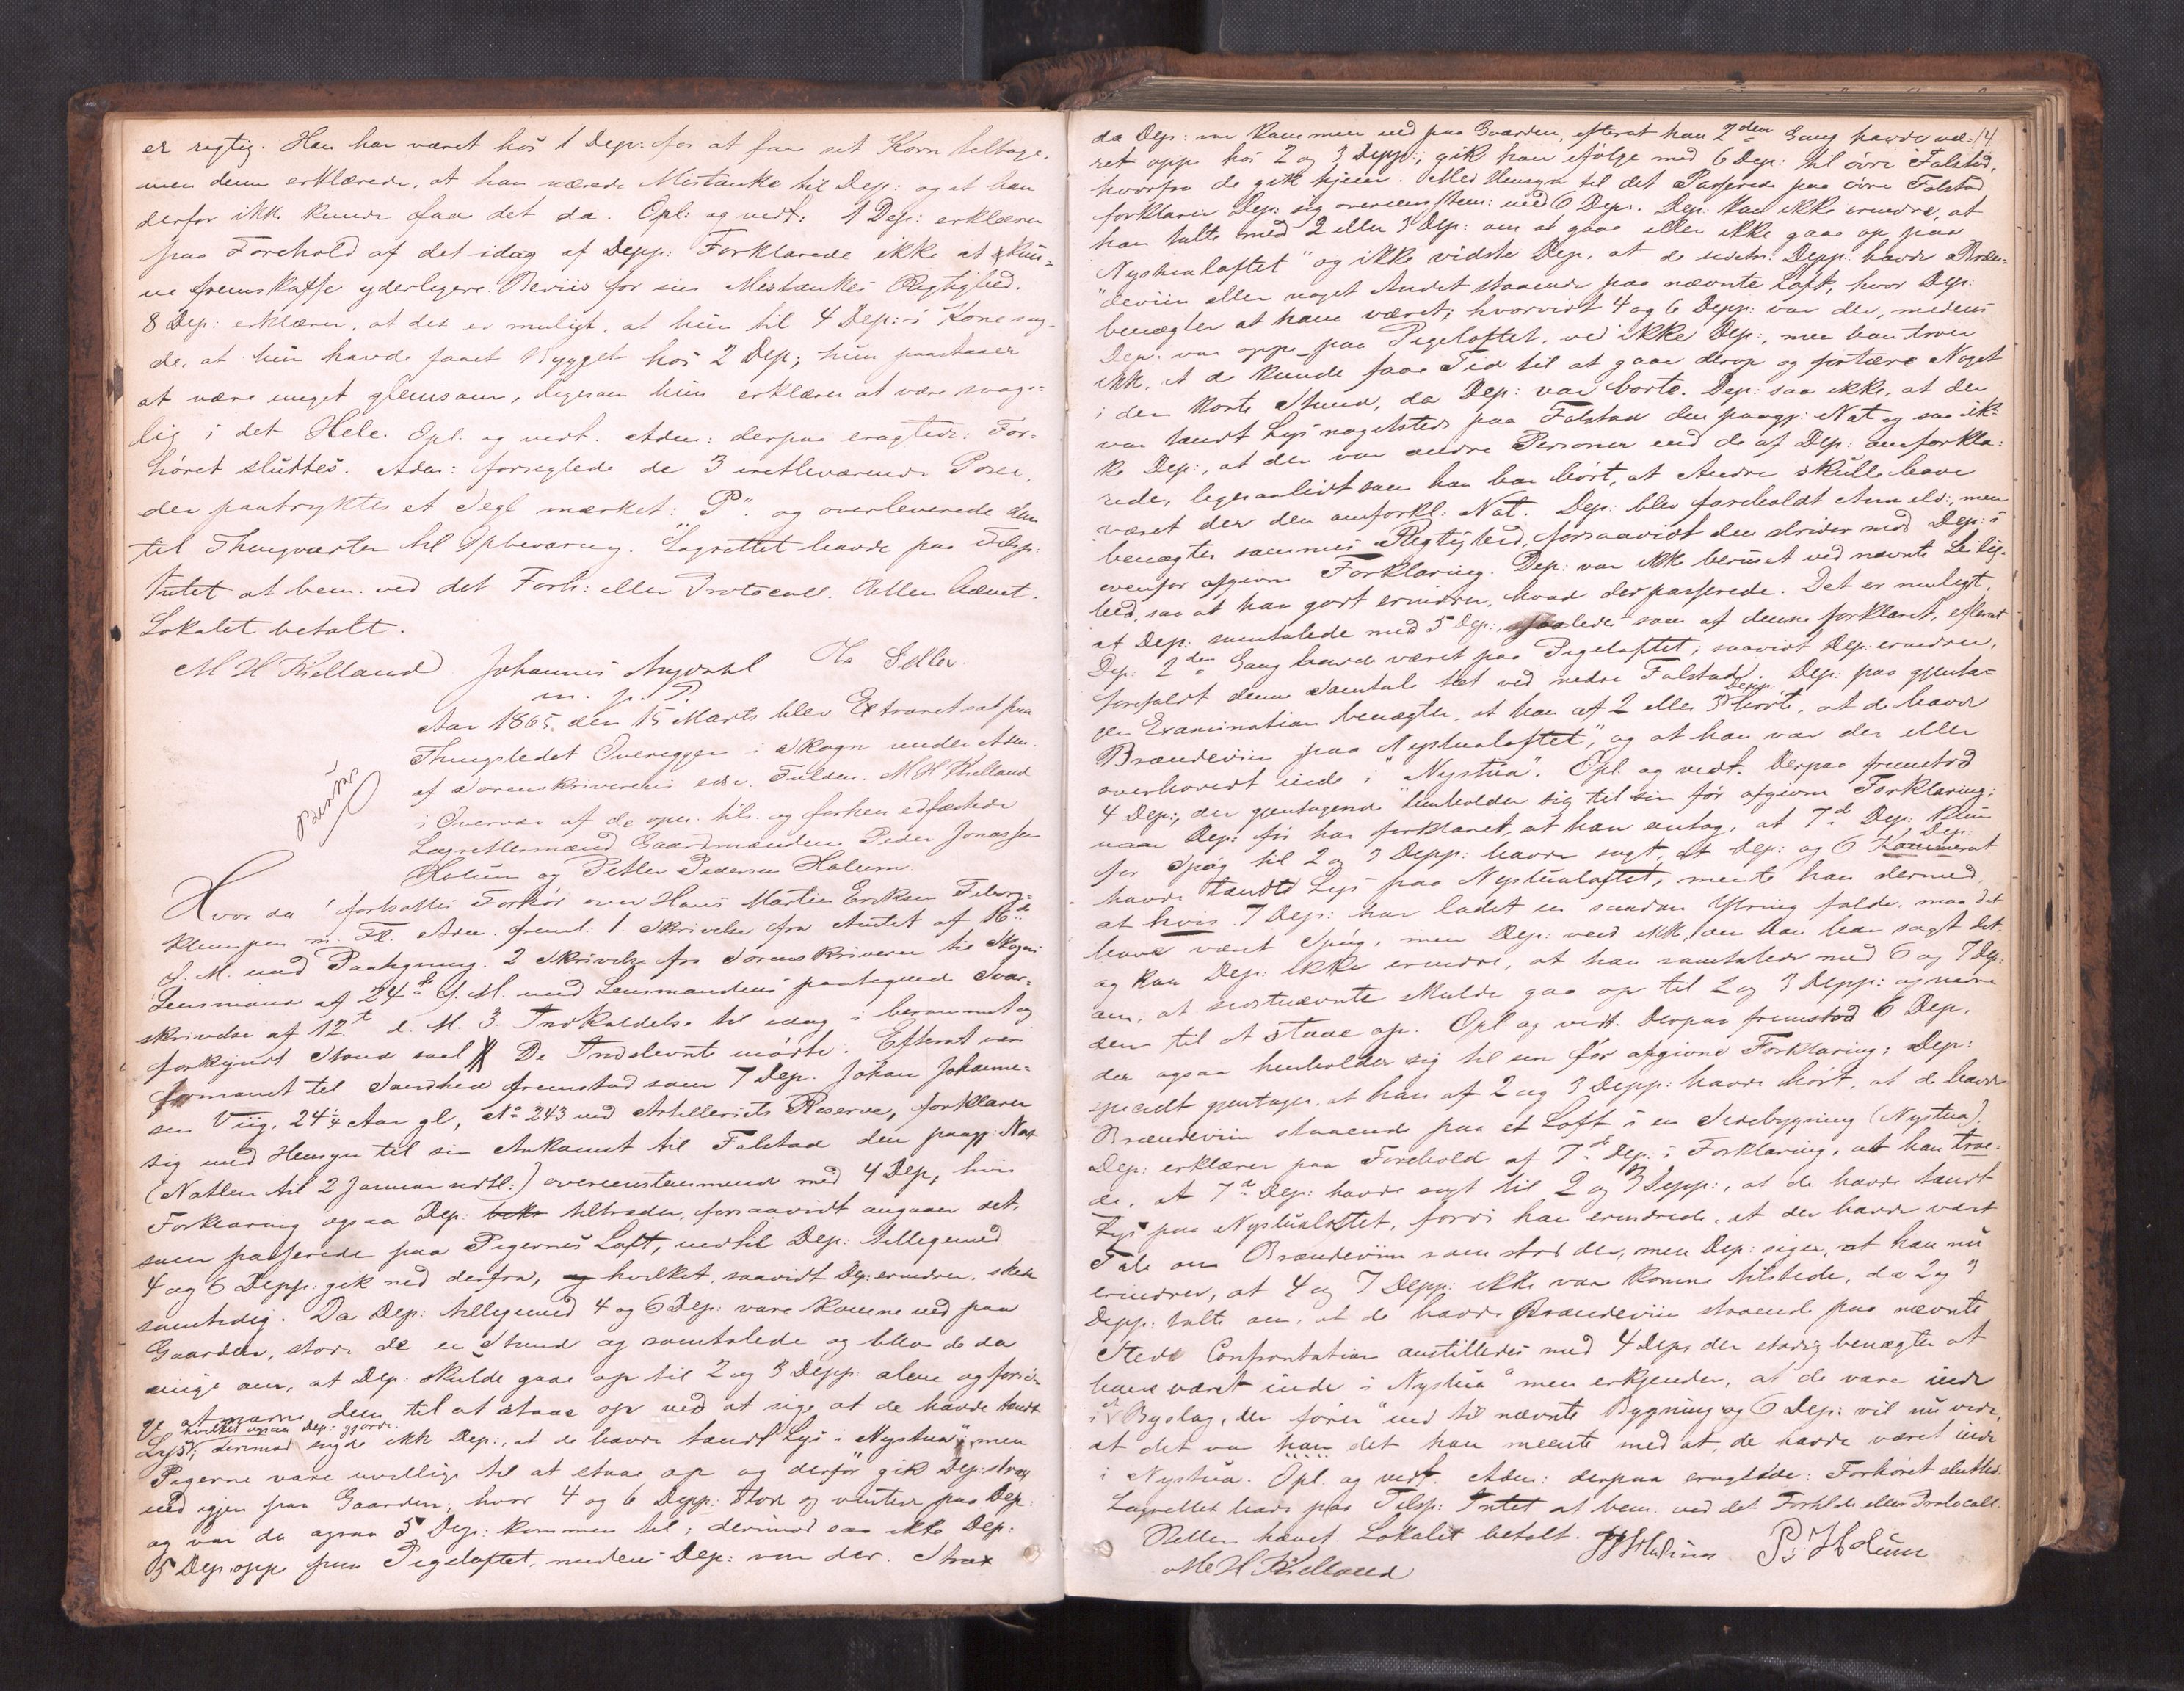 er rigtig. Han har været hos 1 Dep: for at faae sit Korn tilbage,
men denne erklærede, at han nærede Mistanke til Dep: og at han
derfor ikke kunde faae det da. Opl: og vedt: 1 Dep: erklærer
paa Forehold af det idag af Depp: Forklarede ikke at kun=
ne fremskaffe yderligere Beviis for sin Mistankes Rigtighed.
8 Dep: erklærer, at det er muligt, at hun til 4 Dep:s Kone sag=
de, at hun havde faaet Bygget hos 2 Dep; hun paastaaer
at være meget glemsom, ligesom hun erklærer at være svage=
lig i det Hele. Opl. og vedt. Adm: derpaa eragtede: For=
høret sluttes. Adm: forseglede de 3 Poser,
der paatryktes et Segl mærket: "P". og overleverede dem
til Thingværten til Opbevaring. Lagrettet havde paa Tilsp:
Intet at bem. ved det Forh: eller Protocoll. Retten hævet.
Lokalet betalt.
M H Kielland Johannes Myrdahl
m. p. P.
Aar 1865 den 15 Marts blev Extraret sat paa
Thingstedet Overeggen i Skogn under Adm.
af Sorenskriverens edsv. Fuldm. M H Kielland
i Overvær af de opn. tils. og forhen edfæstede
Lagrettesmænd Gaardmændene Peder Jonassen
Holum og Petter Pedersen Holum.
Hvor da! fortsattes Forhør over Hans Martin Eriksen Fiborg=
klumpen m. Fl. Adm. freml: 1. Skrivelse fra Amtet af 16de
f. M. med Paategning. 2 Skrivelse fra Sorenskriveren til Skogns
Lensmand af 24de f. M. med Lensmandens paategnede Svar=
skrivelse af 12te d. M. 3. Indkaldelse til idag i berammet og
forkyndt Stand saal. De Indstevnte mødte. Efterat være
formanet til Sandhed fremstod som 7 Dep. Johan Johanne=
sen Viig, 24¼ Aar gl, No 243 ved Artilleriets Reserve, forklarer
sig med Hensyn til sin Ankomst til Falstad den paagj: Nat
(Natten til 2 Januar sidstl:) overensstemmende med 4 Dep, hvis
Forklaring ogsaa Dep: tiltræder, forsaavidt angaaer det,
som passerede paa Pigernes Loft, indtil Dep: tilligemed
4 og 6 Depp: gik ned derfra, hvilket, saavidt Dep: erindrer, skede
samtidig. Da Dep: tilligemed 4 og 6 Dep: vare komne ned paa
Gaarden, stode de en Stund og samtalede og bleve de da
enige om, at Dep: skulde gaae op til 2 og 3 Depp: alene og forsø=
ge at narre dem til at staae op ved at sige at de havde tændt
hvilket ogsaa Dep: gjorde.
Lys; derimod sagde ikke Dep:, at de havde tændt Lys i "Nystua", men
Pigerne vare uvillige til at staae op og derfor gik Dep: strax
ned igjen paa Gaarden, hvor 4 og 6 Depp: stod og ventede paa Dep:
og var da ogsaa 5 Dep: kommen til; derimod saa ikke Dep:
5 Dep. oppe paa Pigeloftet, medens Dep: var der. Strax
14
da Dep: var kommen ned paa Gaarden, efterat han 2den Gang havde væ=
ret oppe hos 2 og 3 Depp:, gik han ifølge med 6 Dep: til övre Falstad,
hvorfra de gik hjem. Med Hensyn til det Passerede paa övre Falstad
forklarer Dep: sig overensstem: med 6 Dep:. Dep: kan ikke erindre, at
han talte med 2 eller 3 Dep: om at gaae eller ikke gaae op paa
"Nystualoftet" og ikke vidste Dep, at de sidstn: Depp: havde Bræn=
deviin eller noget Andet staaende paa nævnte Loft, hvor Dep:
benægter at have været; hvorvidt 4 og 6 Depp: var der, medens
Dep: var oppe paa Pigeloftet, ved ikke Dep:, men han troer
ikke, at de kunde faae Tid til at gaae derop og fortære Noget
i den korte Stund, da Dep: var borte. Dep: saa ikke, at der
var tændt Lys nogetsteds paa Falstad den paagj: Nat og saa ik=
ke Dep:, at der var andre Personer end de af Dep: omforkla=
rede, ligesaalidt som han har hört, at Andre skulle have
været der den omforkl: Nat. Dep: blev foreholdt Anmeld:, men
benægter sammes Rigtighed, forsaavidt den strider mod Dep:s
ovenfor afgivne Forklaring. Dep: var ikke beruset ved nævnte Leilig=
hed, saa at han godt erindrer, hvad der passerede. Det er muligt,
at Dep: samtalede med 5 Dep:, saaledes som af denne forklaret, efterat
Dep: 2den Gang havde været paa Pigeloftet; saavidt Dep: erindrer,
forefaldt denne Samtale tæt ved nedre Falstad. Dep: paa gjenta=
gen Examination benægter, at han af 2 eller 3 Depp: hörte, at de havde
Brændeviin paa "Nystualoftet", og at han var der eller
overhovedt inde i "Nystua". Opl. og vedt. Derpaa fremstod
4 Dep:, der gjentagende henholder sig til sin før afgivne Forklaring;
naar Dep: før har forklaret, at han antog, at 7de Dep: kun
for Spøg til 2 og 3 Depp: havde sagt, at Dep: og 6 Dep:
havde tændt Lys paa Nystualoftet, mente han dermed,
at hvis 7 Dep: har ladet en saadan Ytring falde, maa det
have været Spög, men Dep: veed ikke, om han har sagt det.
og kan Dep: ikke erindre, at han samtalede med 6 og 7 Dep:
om, at sidstnævnte skulde gaa op til 2 og 3 Depp: og narre
dem til at staae op. Opl og vedt. Derpaa fremstod 6 Dep.
der ogsaa henholder sig til sin för afgivne Forklaring; Dep:
specielt gjentager, at han af 2 og 3 Depp: havde hört, at de havde
Brændeviin staaende paa et Loft i en Sidebygning (Nystua);
Dep: erklærer paa Forehold af 7de Dep:s Forklaring, at han troe=
de, at 7de Dep: havde sagt til 2 og 3 Depp:, at de havde tændt
Lys paa Nystualoftet, fordi han erindrede, at der havde vært
Tale om Brændeviin som stod der, men Dep: siger, at han nu
erindrer, at 4 og 7 Depp: ikke var komne tilstede, da 2 og 3
Depp: talte om, at de havde Brændeviin staaende paa nævnte
Sted. Confrontation anstilledes med 4 Dep: der stadig benægter at
have været inde i "Nystua" men erkjender, at de vare inde
i et Byslag, der förer ind til nævnte Bygning og 6 Dep: vil nu vide,
at det var det han meente med at, de havde været inde
i Nystua. Opl. og vedt. Adm: derpaa eragtede: Forhöret sluttes.
Lagrettet havde paa Tilsp: Intet at bem. ved det Forhldte eller Protocoll.
Retten hævet. Lokalet betalt. Holum P: Holum
M H Kielland